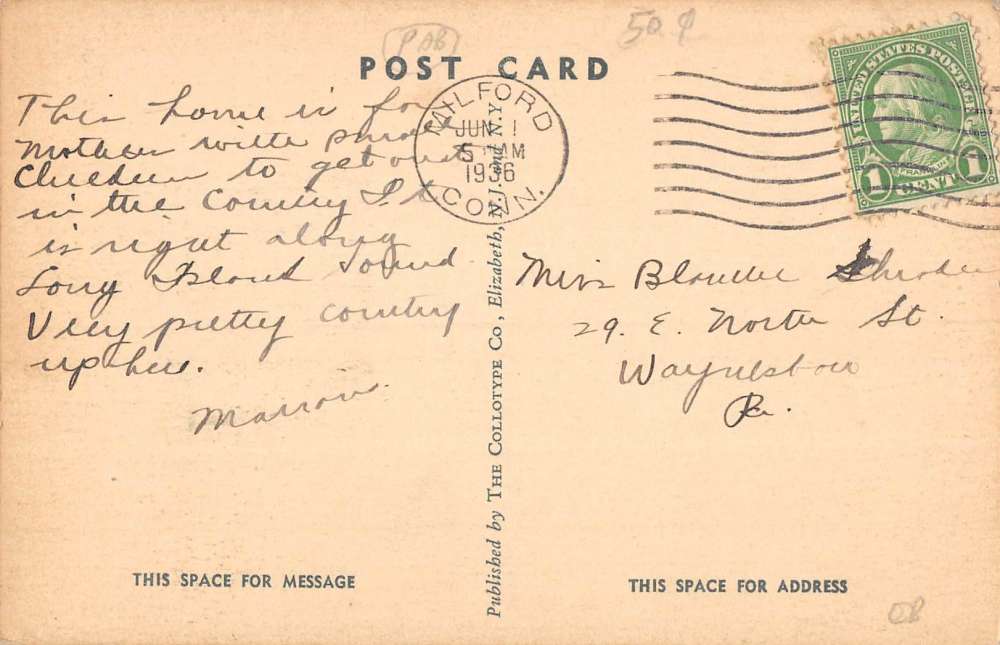 PAB
50 ¢
POST CARD
UNITED STATES POSTAGE
FRANKLIN
1 CENT 1
MILFORD
JUN 1
5 AM
1936
CONN.
This home is for
Mothers with
Children to get out
in the Country I t
is right along
Long Island Sound.
Very pretty country
up here.
Marion.
Miss Blanche Shrader
29. E. North St.
Waynesboro
Pa.
Published by THE COLLOTYPE CO., Elizabeth, N.J. and N.Y
THIS SPACE FOR MESSAGE
THIS SPACE FOR ADDRESS